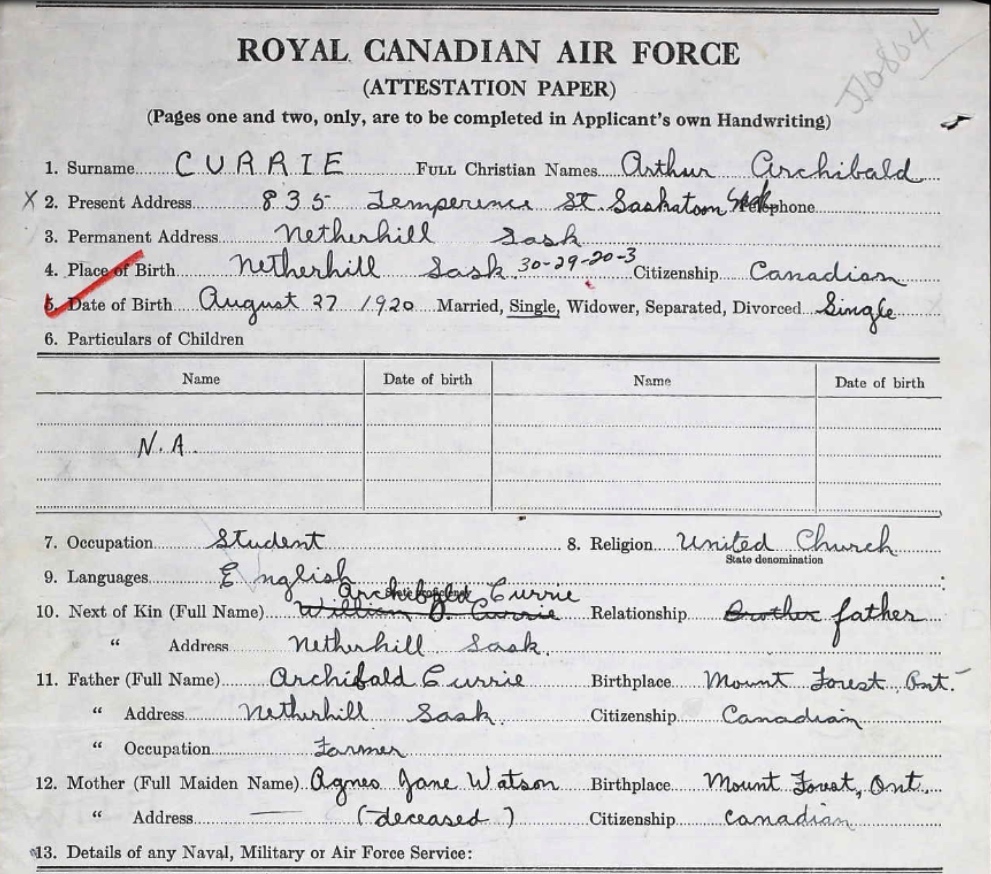 J10804
ROYAL CANADIAN AIR FORCE
(ATTESTATION PAPER)
(Pages one and two, only, are to be completed in Applicant's own Handwriting)
1. Surname CURRIE FULL Christian Names Arthur Archibald
X 2. Present Address 835 Temperence St. Saskatoon Sask Telephone
3. Permanent Address Netherhill Sask
4. Place of Birth Netherhill Sask 30-29-20-3 Citizenship Canadian
5. Date of Birth August 27 1920 Married, Single, Widower, Separated, Divorced Single
6. Particulars of Children
Name Date of birth Name Date of birth
N.A.
7. Occupation Student 8. Religion United Church
State denomination
9. Languages English
Archibald Currie
10. Next of Kin (Full Name) William J. Currie Relationship Brother father
" Address Netherhill Sask.
11. Father (Full Name) Archibald Currie Birthplace Mount Forest Ont.
" Address Netherhill Sask. Citizenship Canadian
" Occupation Farmer
12. Mother (Full Maiden Name) Agnes Jane Watson Birthplace Mount Forest, Ont.
" Address — (deceased) Citizenship Canadian
13. Details of any Naval, Military or Air Force Service: